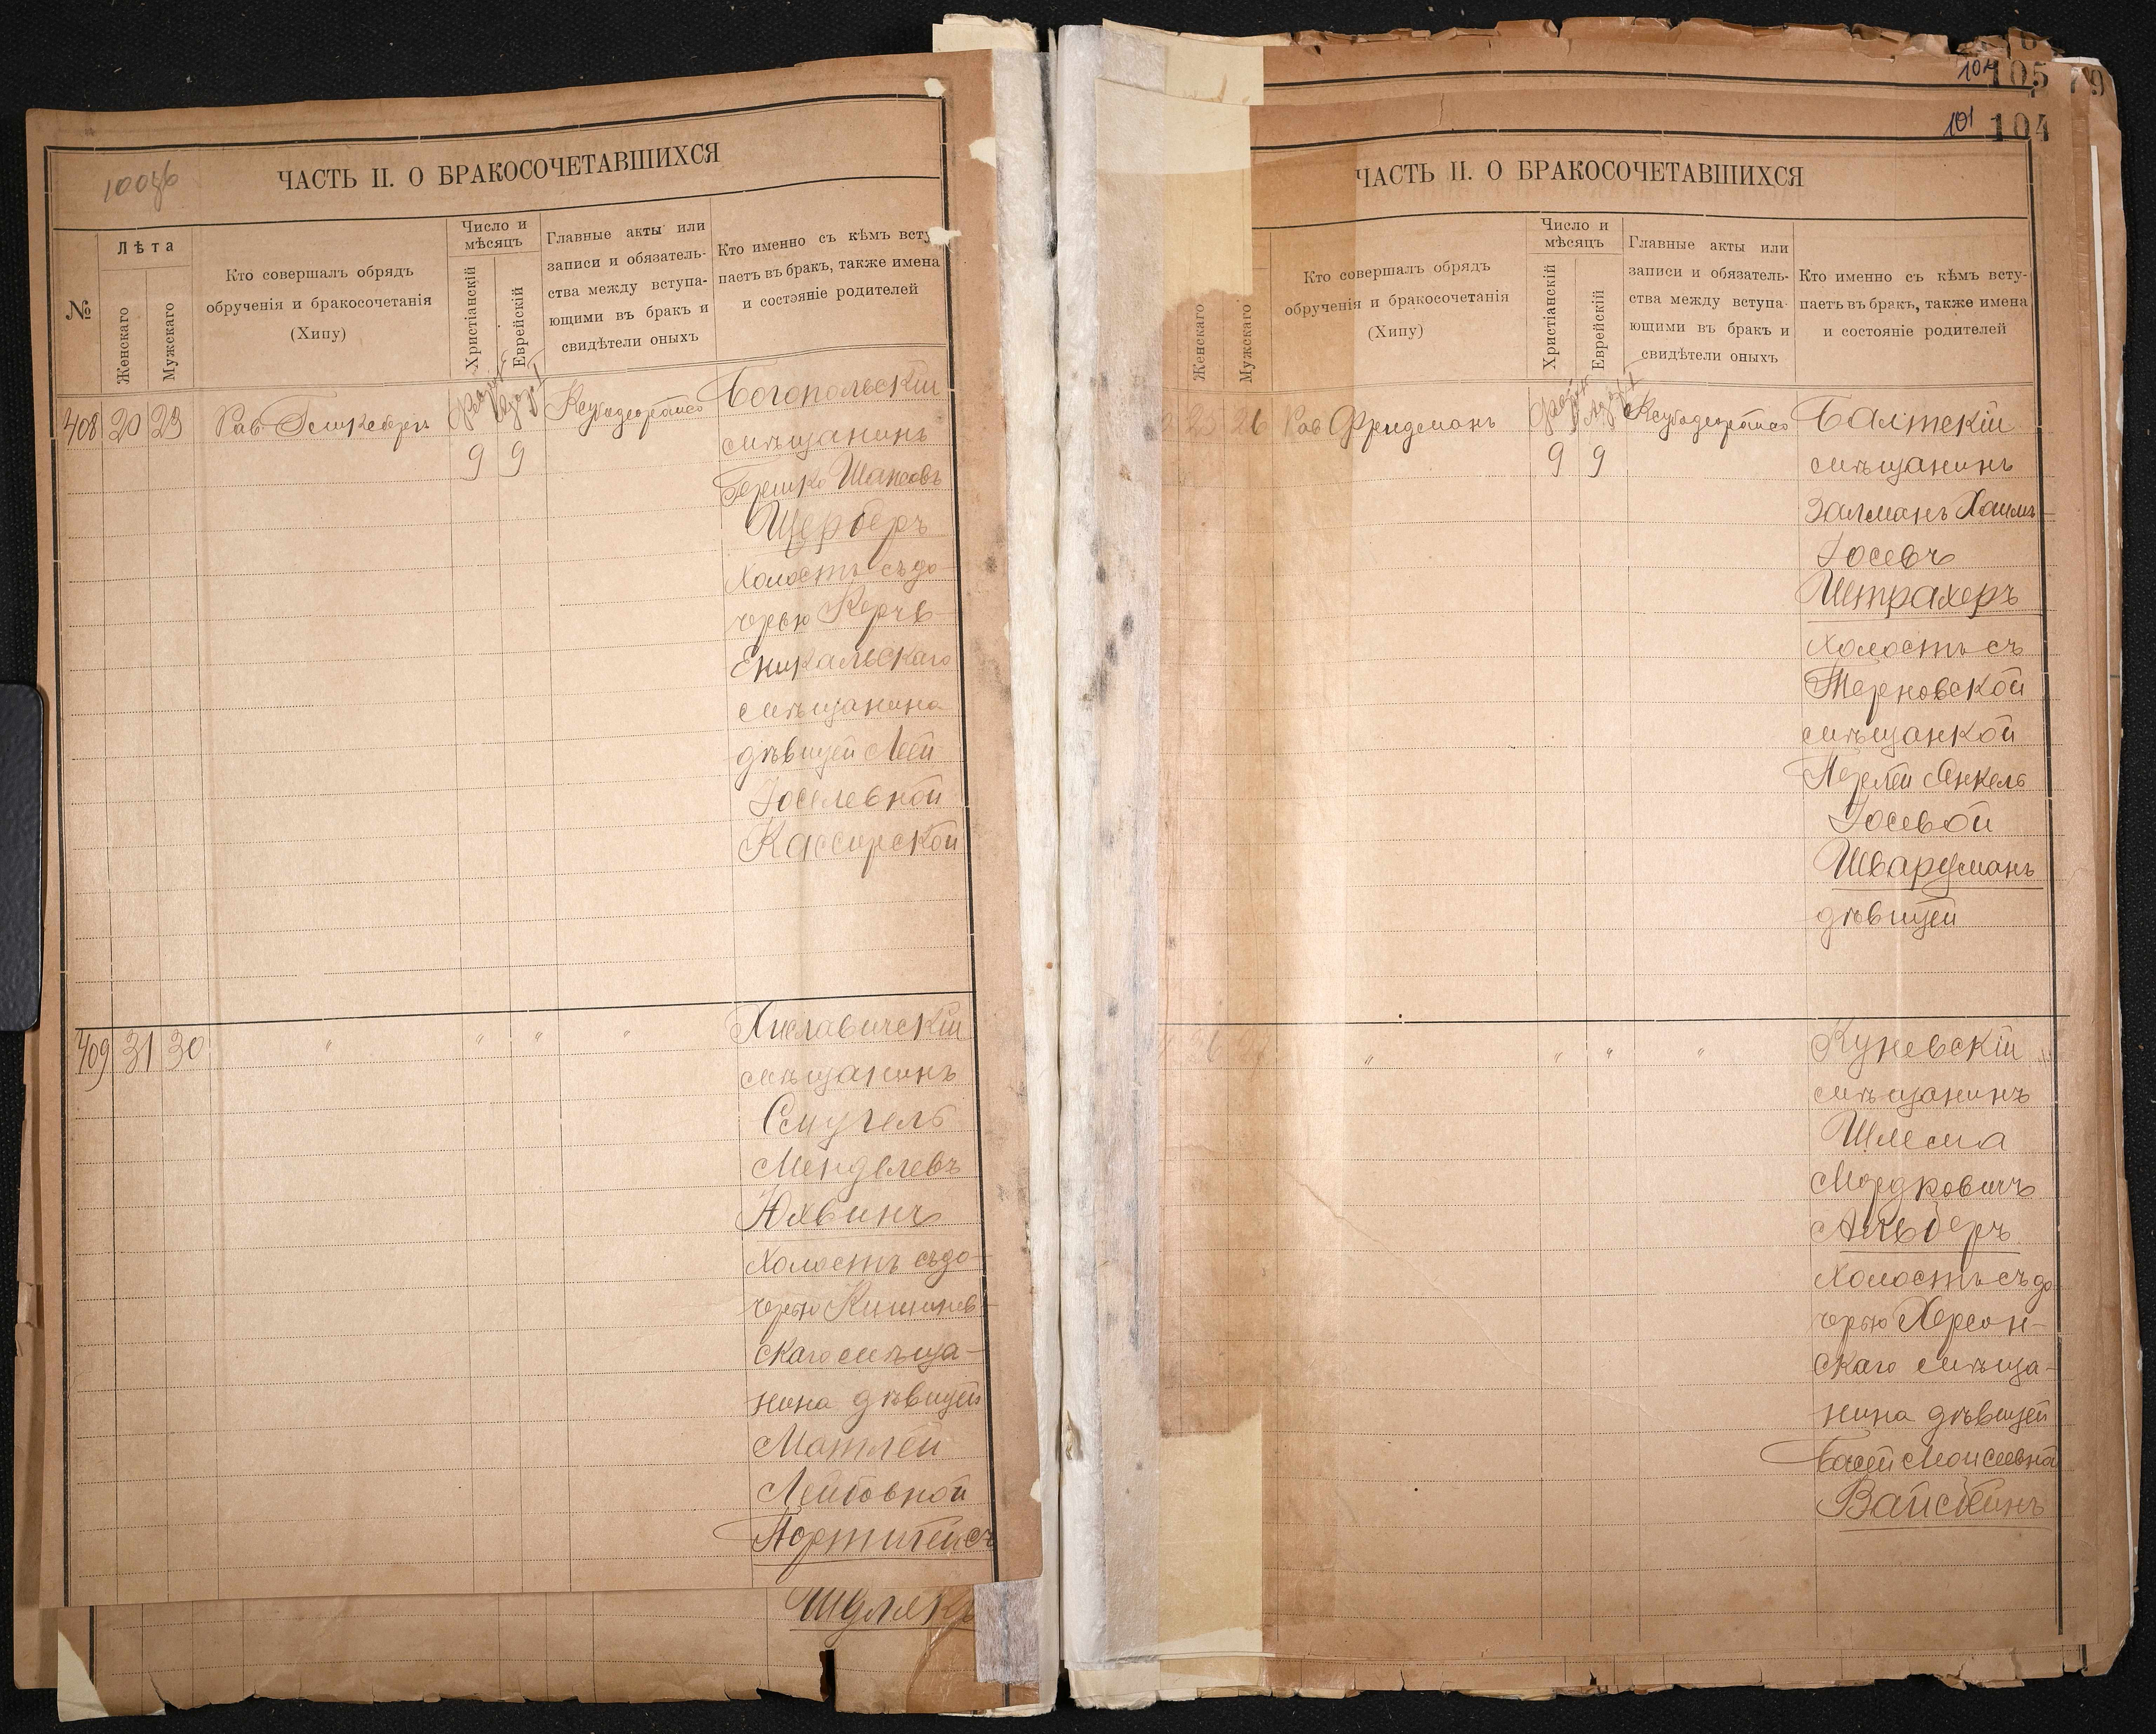 ЧАСТЬ II. О БРАКОСОЧЕТАВШИХСЯ
№
Лѣта
Женскаго
Мужскаго
Кто совершалъ обрядъ
обрученія и бракосочетанія
(Хипу)
Число и
мѣсяцъ
Христіанскій
Еврейскій
Главные акты или
записи и обязатель-
ства между вступа-
ющими въ бракъ и
свидѣтели оныхъ
Кто именно съ кѣмъ всту
паетъ въ бракъ, также имена
и состояніе родителей
408 20 23 Рав
9 9
Богопольскій
мѣщанинъ
Гершко
Щерберъ
Холостъ съ до-
черью Керчь-
Еникальскаго
мѣщанина
дѣвицей Леей
Іоселевной
Кассирской
409 31 30 " " " "
Хиславичскій
мѣщанинъ
Самуель
Менделевъ
Юхвинъ
Холостъ съ до-
черью Кишинев-
скаго мѣща-
нина дѣвицей
Матлей
Лейбовной
Портигейсъ
Шулякъ
105
101 104
ЧАСТЬ II. О БРАКОСОЧЕТАВШИХСЯ
Женскаго
Мужскаго
Кто совершалъ обрядъ
обрученія и бракосочетанія
(Хипу)
Число и
мѣсяцъ
Христіанскій
Еврейскій
Главные акты или
записи и обязатель-
ства между вступа-
ющими въ бракъ и
свидѣтели оныхъ
Кто именно съ кѣмъ всту-
паетъ въ бракъ, также имена
и состояніе родителей
23 26 Рав Фридманъ
9 9
Балтскій
мѣщанинъ
Залманъ Хаимъ-
Іосевъ
Штрахеръ
Холостъ съ
Терновской
мѣщанкой
Перлей Янкель
Іосевой
Шварцманъ
дѣвицей
" " " "
Куневскій
мѣщанинъ
Шлема
Мордковичъ
Альберъ
Холостъ съ до
черью Херсон-
скаго мѣща-
нина дѣвицей
Басей Моисеевной
Вайсбейнъ